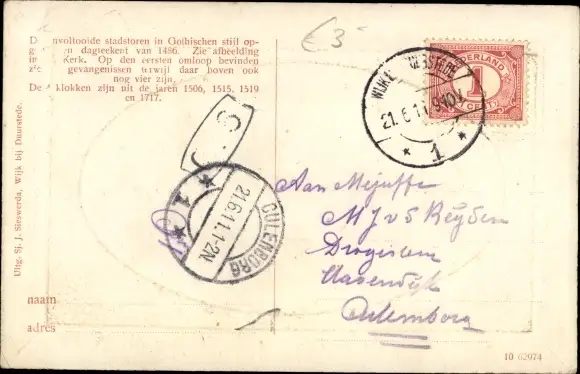 De onvoltooide stadstoren in Gothischen stijl op-
dagteekent van 1486. Zie afbeelding
Kerk. Op den eersten omloop bevinden
gevangenissen terwijl daar boven ook
nog vier zijn.
De klokken zijn uit de jaren 1506, 1515, 1519
en 1717.
Uitg. Sj. J. Sieswerda, Wijk bij Duurstede.
naam
adres
€ 3
21.6.11 9-10V
1
NEDERLAND
1
CENT
S. J.
1
21.6.11.1-2N
CULENBORG
Aan Mejuffe
M J v S Reijden
Drogisten
Culemborg
10 62974